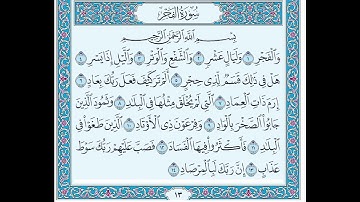 سُورَةُ الفَجْرِ
بِسْمِ اللَّهِ الرَّحْمَٰنِ الرَّحِيمِ
وَالْفَجْرِ ١ وَلَيَالٍ عَشْرٍ ٢ وَالشَّفْعِ وَالْوَتْرِ ٣ وَاللَّيْلِ إِذَا يَسْرِ ٤
هَلْ فِي ذَٰلِكَ قَسَمٌ لِّذِي حِجْرٍ ٥ أَلَمْ تَرَ كَيْفَ فَعَلَ رَبُّكَ بِعَادٍ ٦
إِرَمَ ذَاتِ الْعِمَادِ ٧ الَّتِي لَمْ يُخْلَقْ مِثْلُهَا فِي الْبِلَادِ ٨ وَثَمُودَ الَّذِينَ
جَابُوا الصَّخْرَ بِالْوَادِ ٩ وَفِرْعَوْنَ ذِي الْأَوْتَادِ ١٠ الَّذِينَ طَغَوْا فِي
الْبِلَادِ ١١ فَأَكْثَرُوا فِيهَا الْفَسَادَ ١٢ فَصَبَّ عَلَيْهِمْ رَبُّكَ سَوْطَ
عَذَابٍ ١٣ إِنَّ رَبَّكَ لَبِالْمِرْصَادِ ١٤
١٣